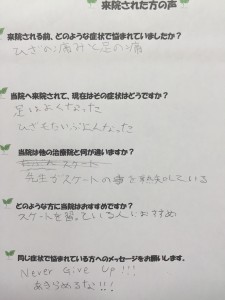 来院された方の声
来院される前、どのような症状で悩まれていましたか?
ひざの痛みと足の痛
当院へ来院されて、現在はその症状はどうですか?
足はよくなった
ひざもだいぶよくなった
当院は他の治療院と何が違いますか?
スケート
先生がスケートの事を熟知している
どのような方に当院はおすすめですか?
スケートを習っている人におすすめ
同じ症状で悩まれている方へのメッセージをお願いします。
Never Give Up!!!
あきらめるな!!